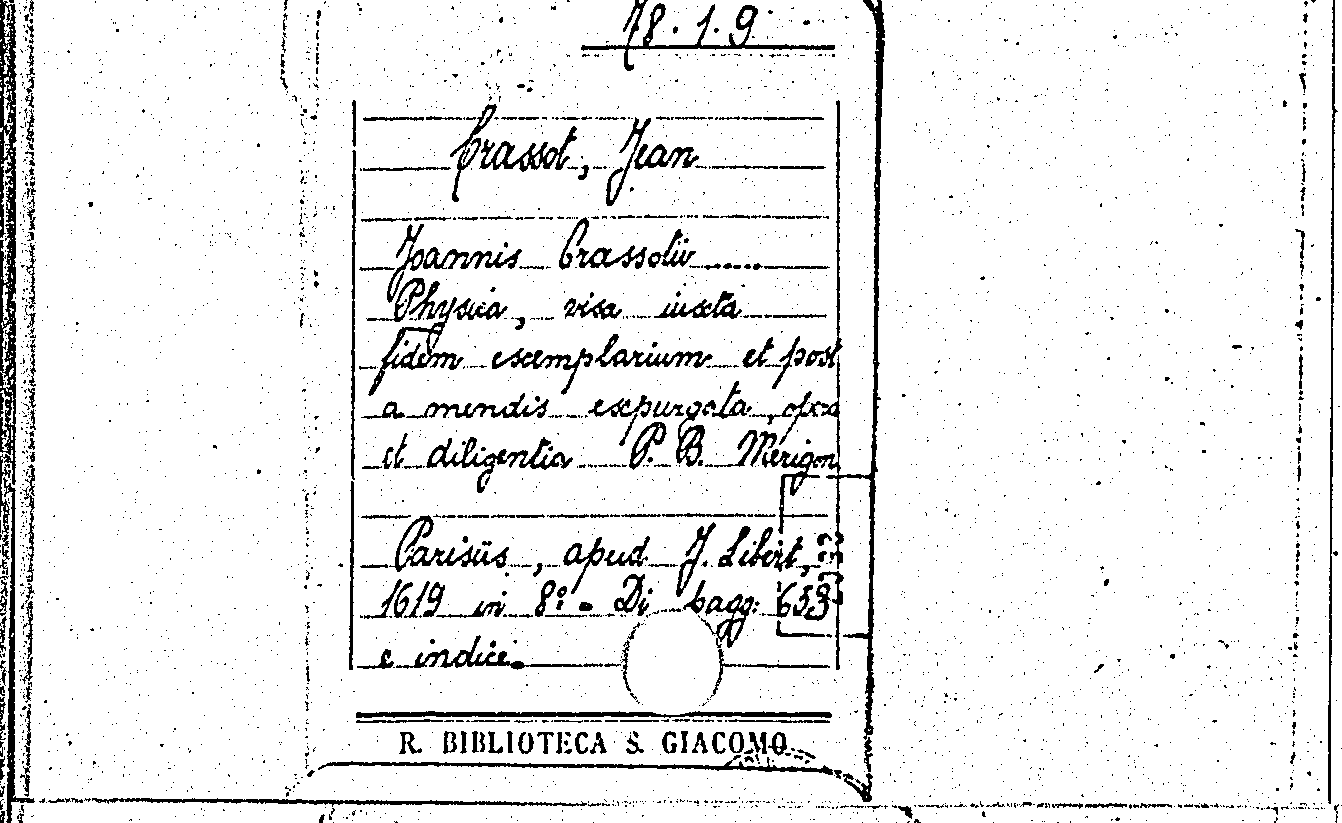 78.1.9
Crassot, Jean
Joannis Crassotii ......
Physica, visa iuxta
fidem exemplarium et post
a mendis expurgata, opera
et diligentia P. B. Mérigon
Parisiis, apud J. Libert,
1619 in 8º - Di pagg: 653
e indici.
R. BIBLIOTECA S. GIACOMO